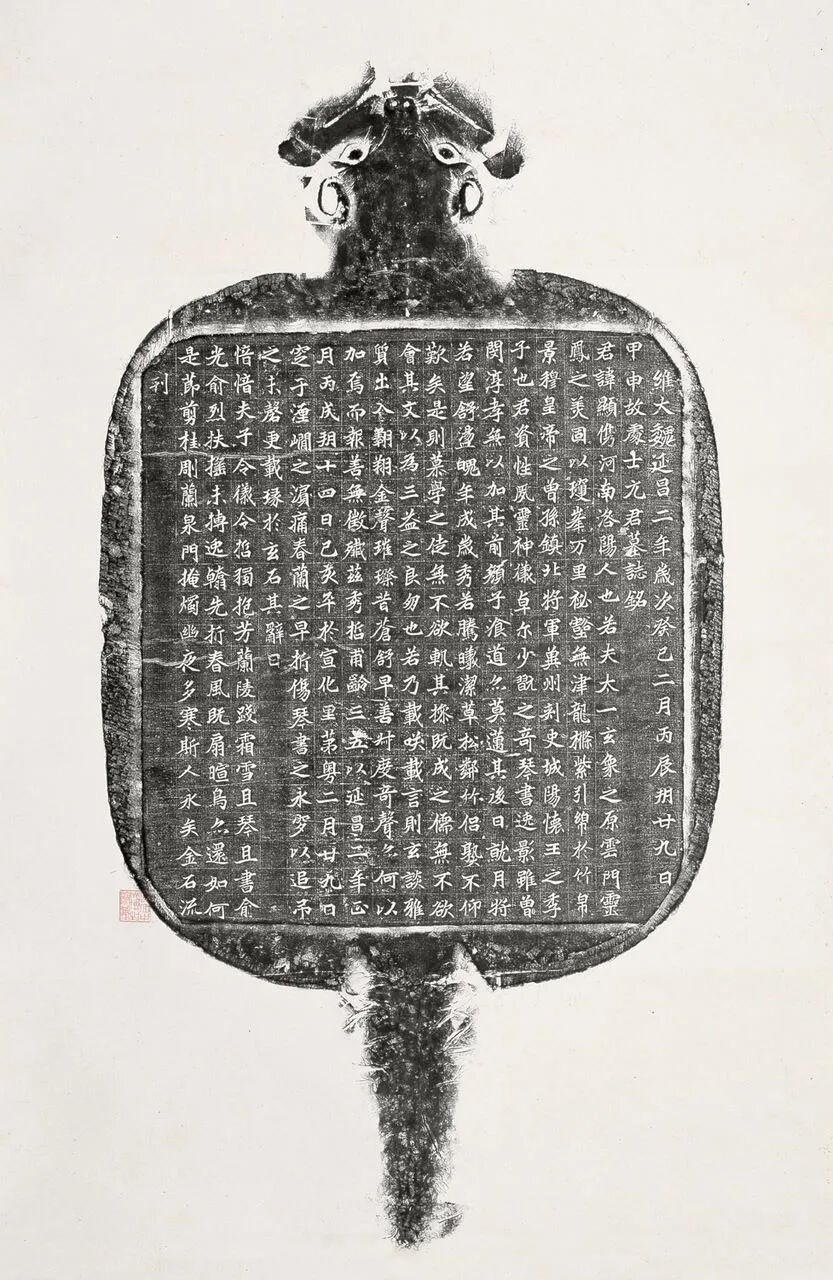 維大魏延昌二年歲次癸巳二月丙辰朔廿九日
甲申故處士元君墓誌銘
君諱顯儁河南洛陽人也若夫太一玄象之原雲門靈
鳳之美固以瓊峯万里祕壑無津龍檦紫引帶於竹帛
景穆皇帝之曾孫鎮北將軍冀州刺史城陽懷王之季
子也君資性夙靈神儀卓尓少翫之奇琴書逸影雖曾
閔淳孝無以加其前顏子湌道亦莫邁其後日就月將
若望舒盪魄年成歲秀若騰曦潔草松鄰竹侶孰不仰
歎矣是則慕學之徒無不欲軌其操既成之儒無不欲
會其文以為三益之良朋也若乃載咲載言則玄談雅
質出入翱翔金聲璀璨昔蒼舒早善叶度奇聲亦何以
加焉而報善無徵殲茲秀哲甫齡三五以延昌二年正
月丙戌朔十四日己亥卒於宣化里第粵二月廿九日
窆于瀍澗之濱痛春蘭之早折傷琴書之永穸以追弔
之未罄更載琢於玄石其辭曰
愔愔夫子令儀令哲獨抱芳蘭陵踐霜雪且琴且書俞
光俞烈扶搖未搏逸翮先折春風既扇暄鳥亦還如何
是節剪桂彫蘭泉門掩燭幽夜多寒斯人永矣金石流
刊